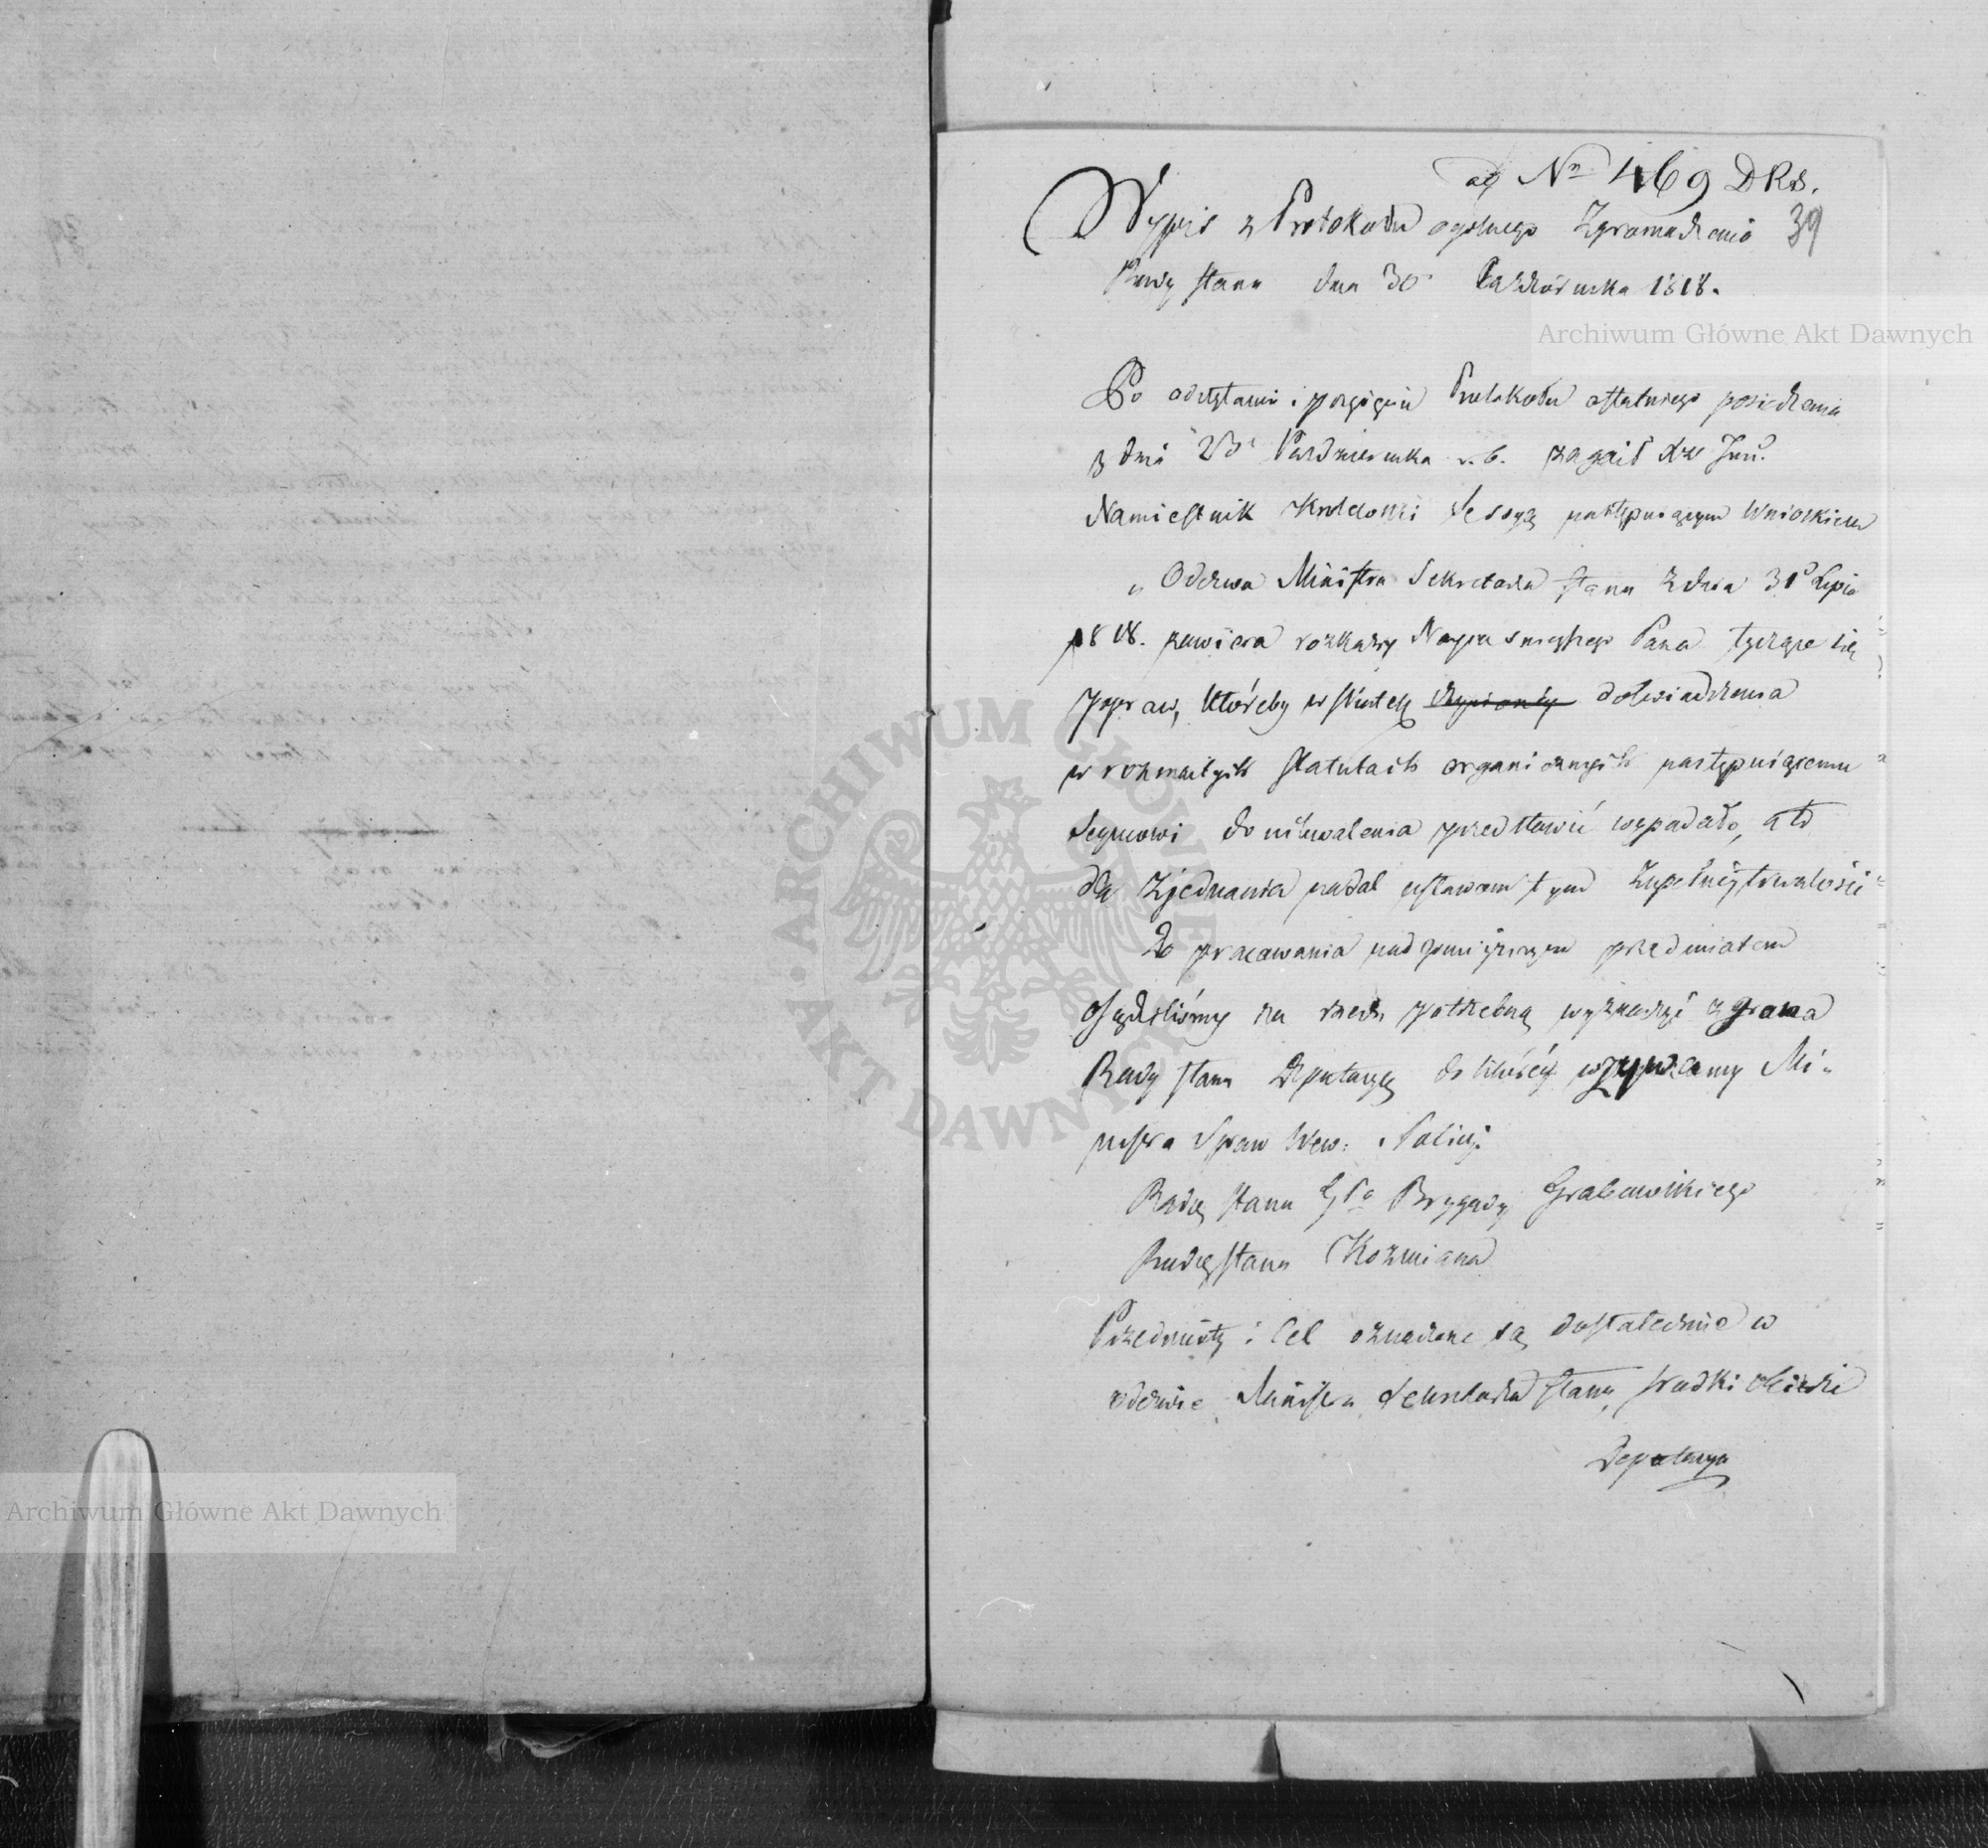 ad Nro 469 DRS.
Wypis z Protokołu ogolnego Zgromadzenia 39
Rady stanu dnia 30 Pazdziernika 1818.
Archiwum Główne Akt Dawnych
Po odczytaniu i przyięciu Protokołu ostatniego posiedzenia
z dnia 23 Pazdziernika r. b. zagaił Xże Jmć
Namiestnik Krolewski Sessyą następuiącym Wnioskiem
„ Odezwa Ministra Sekretarza Stanu z dnia 31 Lipca
1818. zawiera rozkazy Nayiasnieyszego Pana tyczące się
popraw, któreby w skutek doświadczenia
w rozmaitych statutach organicznych następuiącemu
Seymowi do uchwalenia przedstawić wypadało, a to
dla zjednania nadal ustawom tym zupełnéy trwałości
Do pracowania nad powyższym przedmiotem
osądziliśmy za rzecz potrzebną wyznaczyć z grona
Rady stanu Deputacyę do któréy wzywamy Mi-
nistra Spraw Wew: i Policyi
Radcę Stanu Gła Brygady Grabowskiego
Radcę stanu Kozmiana
Przedmioty i cel oznaczone są dostatecznie w
odezwie Ministra Sekretarza Stanu, srodki obierze
Deputacya
ARCHIWUM GŁÓWNE AKT DAWNYCH
Archiwum Główne Akt Dawnych